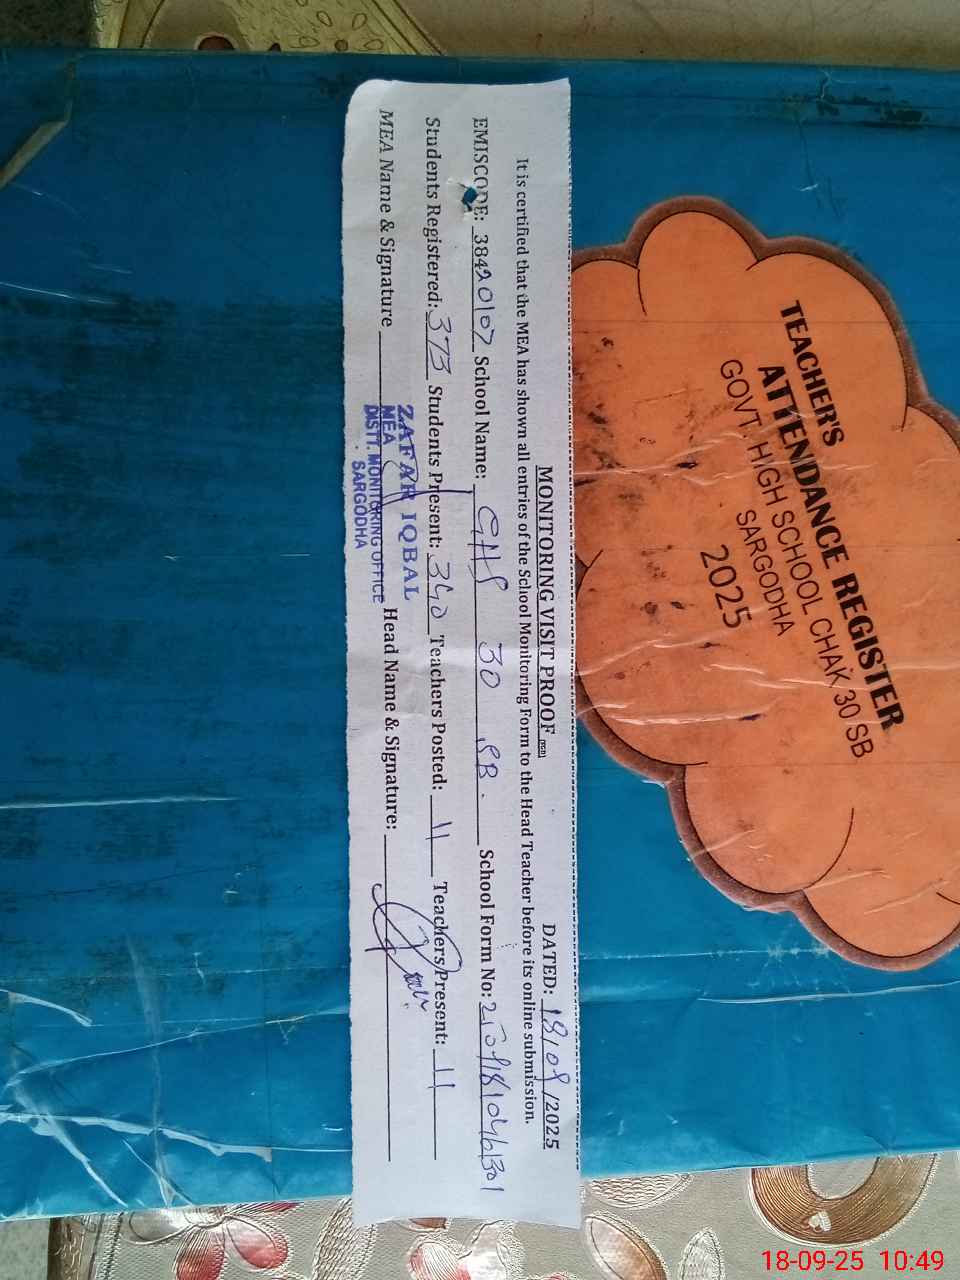 MONITORING VISIT PROOF
DATED: 18/09/2025
It is certified that the MEA has shown all entries of the School Monitoring Form to the Head Teacher before its online submission.
EMISCODE: 38420107 School Name: GHS 30 SB. School Form No:
Students Registered: 373 Students Present: Teachers Posted: 11 Teachers Present: 11
MEA Name & Signature Head Name & Signature:
ZAFAR IQBAL
MEA
DISTT. MONITORING OFFICE
SARGODHA
TEACHER'S
ATTENDANCE REGISTER
GOVT. HIGH SCHOOL CHAK 30 SB
SARGODHA
2025
18-09-25 10:49